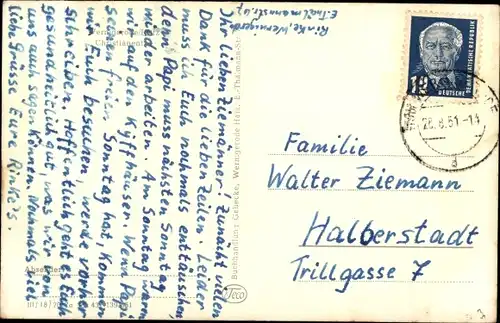 Rieke, Wernigerode
E. Thälmannstr. 67
Ihr lieben Ziemänner! Zunächst vielen
Dank für die lieben Zeilen. Leider
muss ich Euch nochmals enttäuschen,
denn Papi muss nächsten Sonntag
wieder arbeiten. Am Sonntag waren
wir auf den Kyffhäuser. Wenn Papi
einen freien Sonntag hat, kommen
wir Euch besuchen, werde vorher
schreiben. Hoffentlich geht es Euch
gesundheitlich gut, was wir von
uns auch sagen können. Nochmals viel
liebe Grüsse Eure Rieke's.
Wernigerode
Christianental
Absender:
III/18/
Buchhandlung Gahecke, Wernigerode Harz, E.-Thälmann-St
Teco
DEUTSCHE
DEMOKRATISCHE REPUBLIK
28.8.51-14
d
Familie
Walter Ziemann
Halberstadt
Trillgasse 7